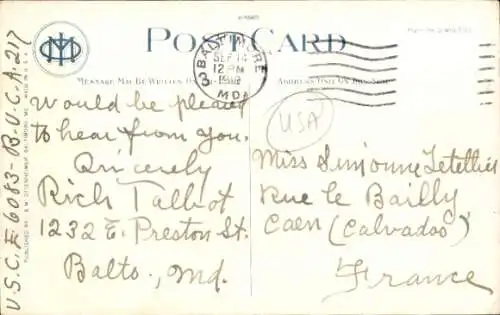 POST CARD
BALTIMORE
SEP 14
12 PM
MD
3
MESSAGE MAY BE WRITTEN ON THIS SIDE
ADDRESS ONLY ON THIS SIDE
Would be pleased
to hear from you.
Sincerely
Rich Talbot
1232 E. Preston St.
Balto., Md.
USA
Miss Simonne Letellier
Rue le Bailly
Caen (Calvados)
France
U.S.C.E 6083-B.U.C.A. 217